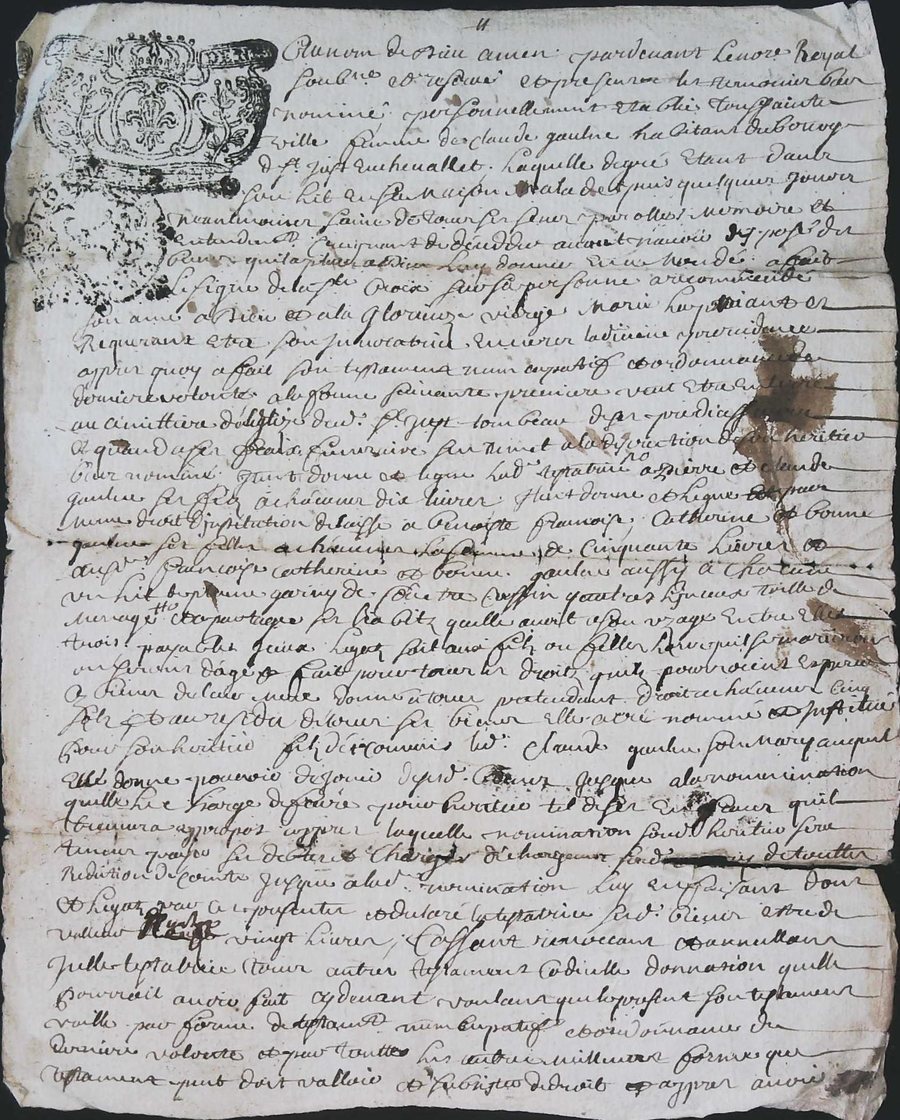 Au nom de Dieu amen pardevant Le no.re Royal
soub.né et reservé et presents les temoins bas
nommés personnellement establie Toussainte
ville femme de Claude gaulne habitant du bourg
d St. Just En chevallet. Laquelle de gré Etant dans
son lit En sa Maison malade depuis quelques jours
neantmoins saine de tous ses sens parolles Memoire et
Entendem.t craignant de deceder avant d'avoir disposé des
biens qu'il a plu a Dieu Luy donner En ce Monde a fait
Le signe de la ste. Croix sur sa personne a recommandé
son ame a Dieu et a la Glorieuze vierge Marie La priant et
Requerant Etre son Invocatrice Envers la divine providence
appres quoy a fait son testament num cupatif et ordonnance de
derniere volonté a la forme suivante premiere veut Etre
au cimittiere de l'eglize dud. St. Just tombeau de ses predecesseurs
Et quand a ses fraix funeraire s'en remet a la discretion de son heritier
bas nommé Item donne et legue lad. testatrice a Pierre et claude
gaulne ses fils a chacun dix livres Item donne et Legue
meme droit d'institution delaisse a benoiste francoise, Catherine et bonne
gaulne ses filles a chacunes la somme de Cinquante Livres et
francoise Catherine et bonne gaulne aussy a chacune
un lit garny de Coettre Cussin quatres Linceux toille de
Menage et a partager ses habits quelle avoit a son uzage Entre Elles
trois payables iceux Legat soit aux fils ou filles Lors quil se mariront
ou seront d'age et ce fait pour tous les droits quils pourroient Esperer
Es biens de leur Mere donne a tous pretendant droit a chacun Cinq
sols Et au residu de tous ses biens Elle a cré nommé et Institué
pour son heritier led. Claude gaulne son Mary auquel
Elle donne pouvoir de jouir de sesd. biens jusques a la nommination
quelle Le charge de faire pour heritier tel de ses Enfans quil
trouvera appropos appres laquelle nommination sond. heritier sera
tenus payer ses debtes et Charges dechargeant sond. de touttes
Reddition de Compte jusques a lad. nommination Luy En faisant dont
et Legat par ces presentes et declaré la testatrice sesd. biens etre de
valleur vingt livres, Cassant revoccant et annullant
Icelle testatrice tous autres testament Codicille donnation quelle
pourroit avoir fait cy devant voulant que le present son testament
vaille par forme de testam.t num cupatif et ordonnance de
derniere volonté et par touttes les autres meilleures formes que
testament peut doit valloir et subsister de droit et appres avoir